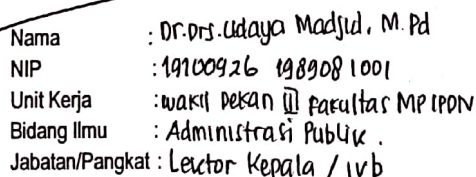 Nama : Dr. Drs. Udaya Madjid, M. Pd
NIP : 19700926 198908 1001
Unit Kerja : Wakil Dekan II Fakultas MP IPDN
Bidang Ilmu : Administrasi Publik.
Jabatan/Pangkat : Lektor Kepala / IVb